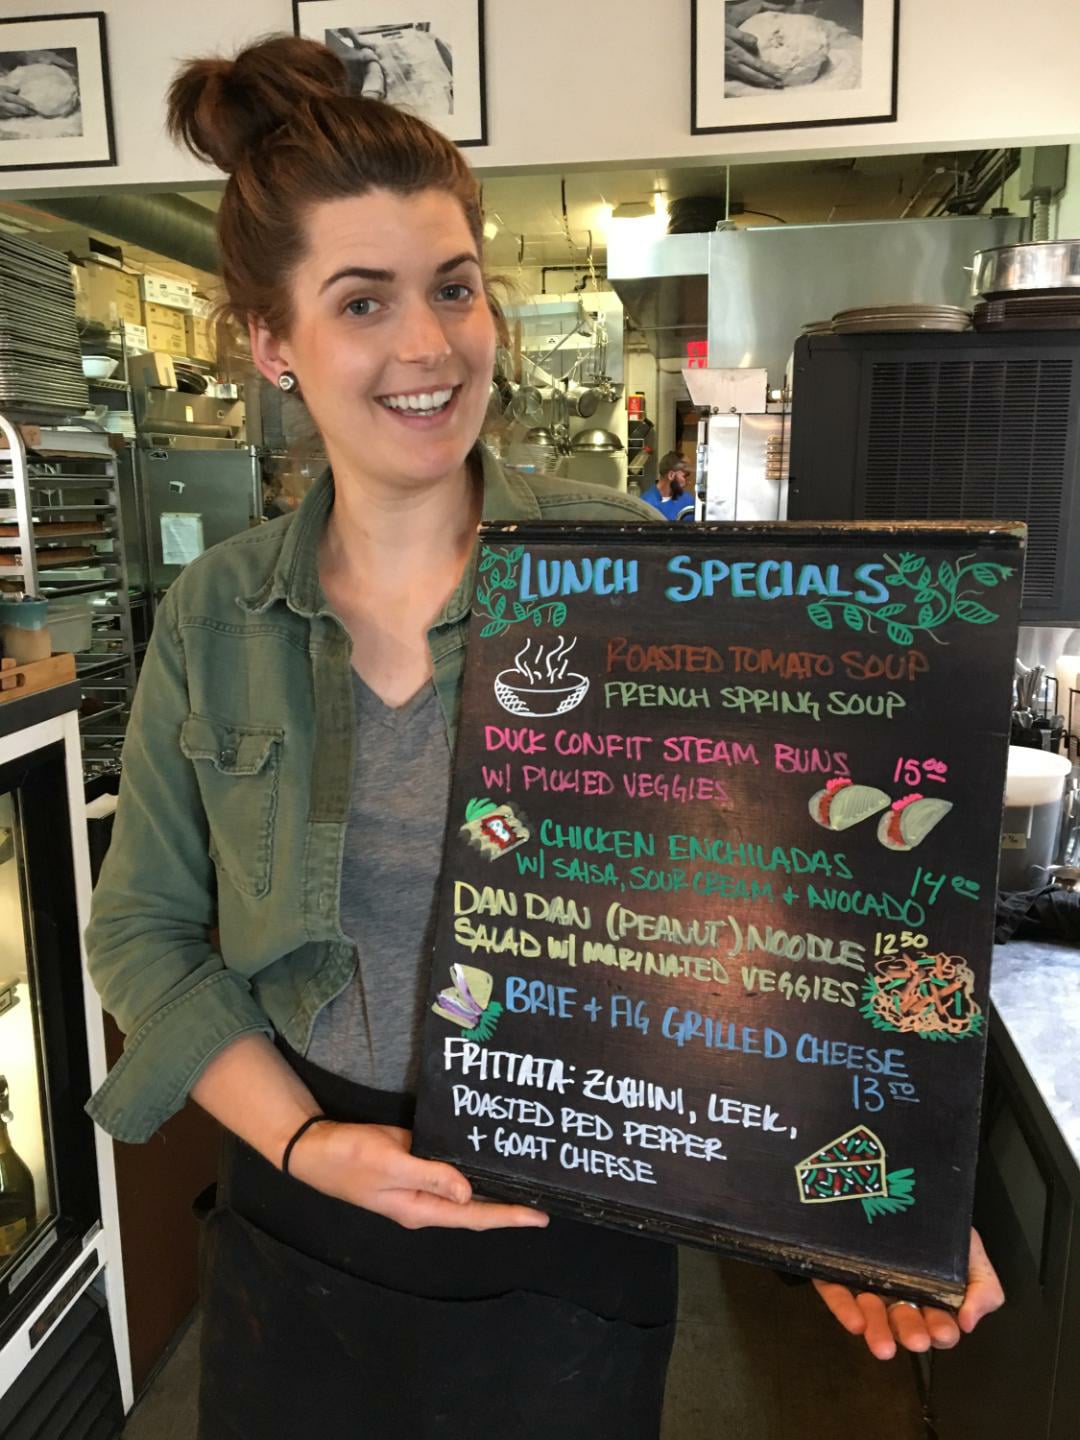 LUNCH SPECIALS
ROASTED TOMATO SOUP
FRENCH SPRING SOUP
DUCK CONFIT STEAM BUNS 15.00
W/ PICKLED VEGGIES
CHICKEN ENCHILADAS
W/ SALSA, SOUR CREAM + AVOCADO 14.00
DAN DAN (PEANUT) NOODLE 12 50
SALAD W/ MARINATED VEGGIES
BRIE + FIG GRILLED CHEESE
13 50
FRITTATA: ZUCHINI, LEEK,
ROASTED RED PEPPER
+ GOAT CHEESE